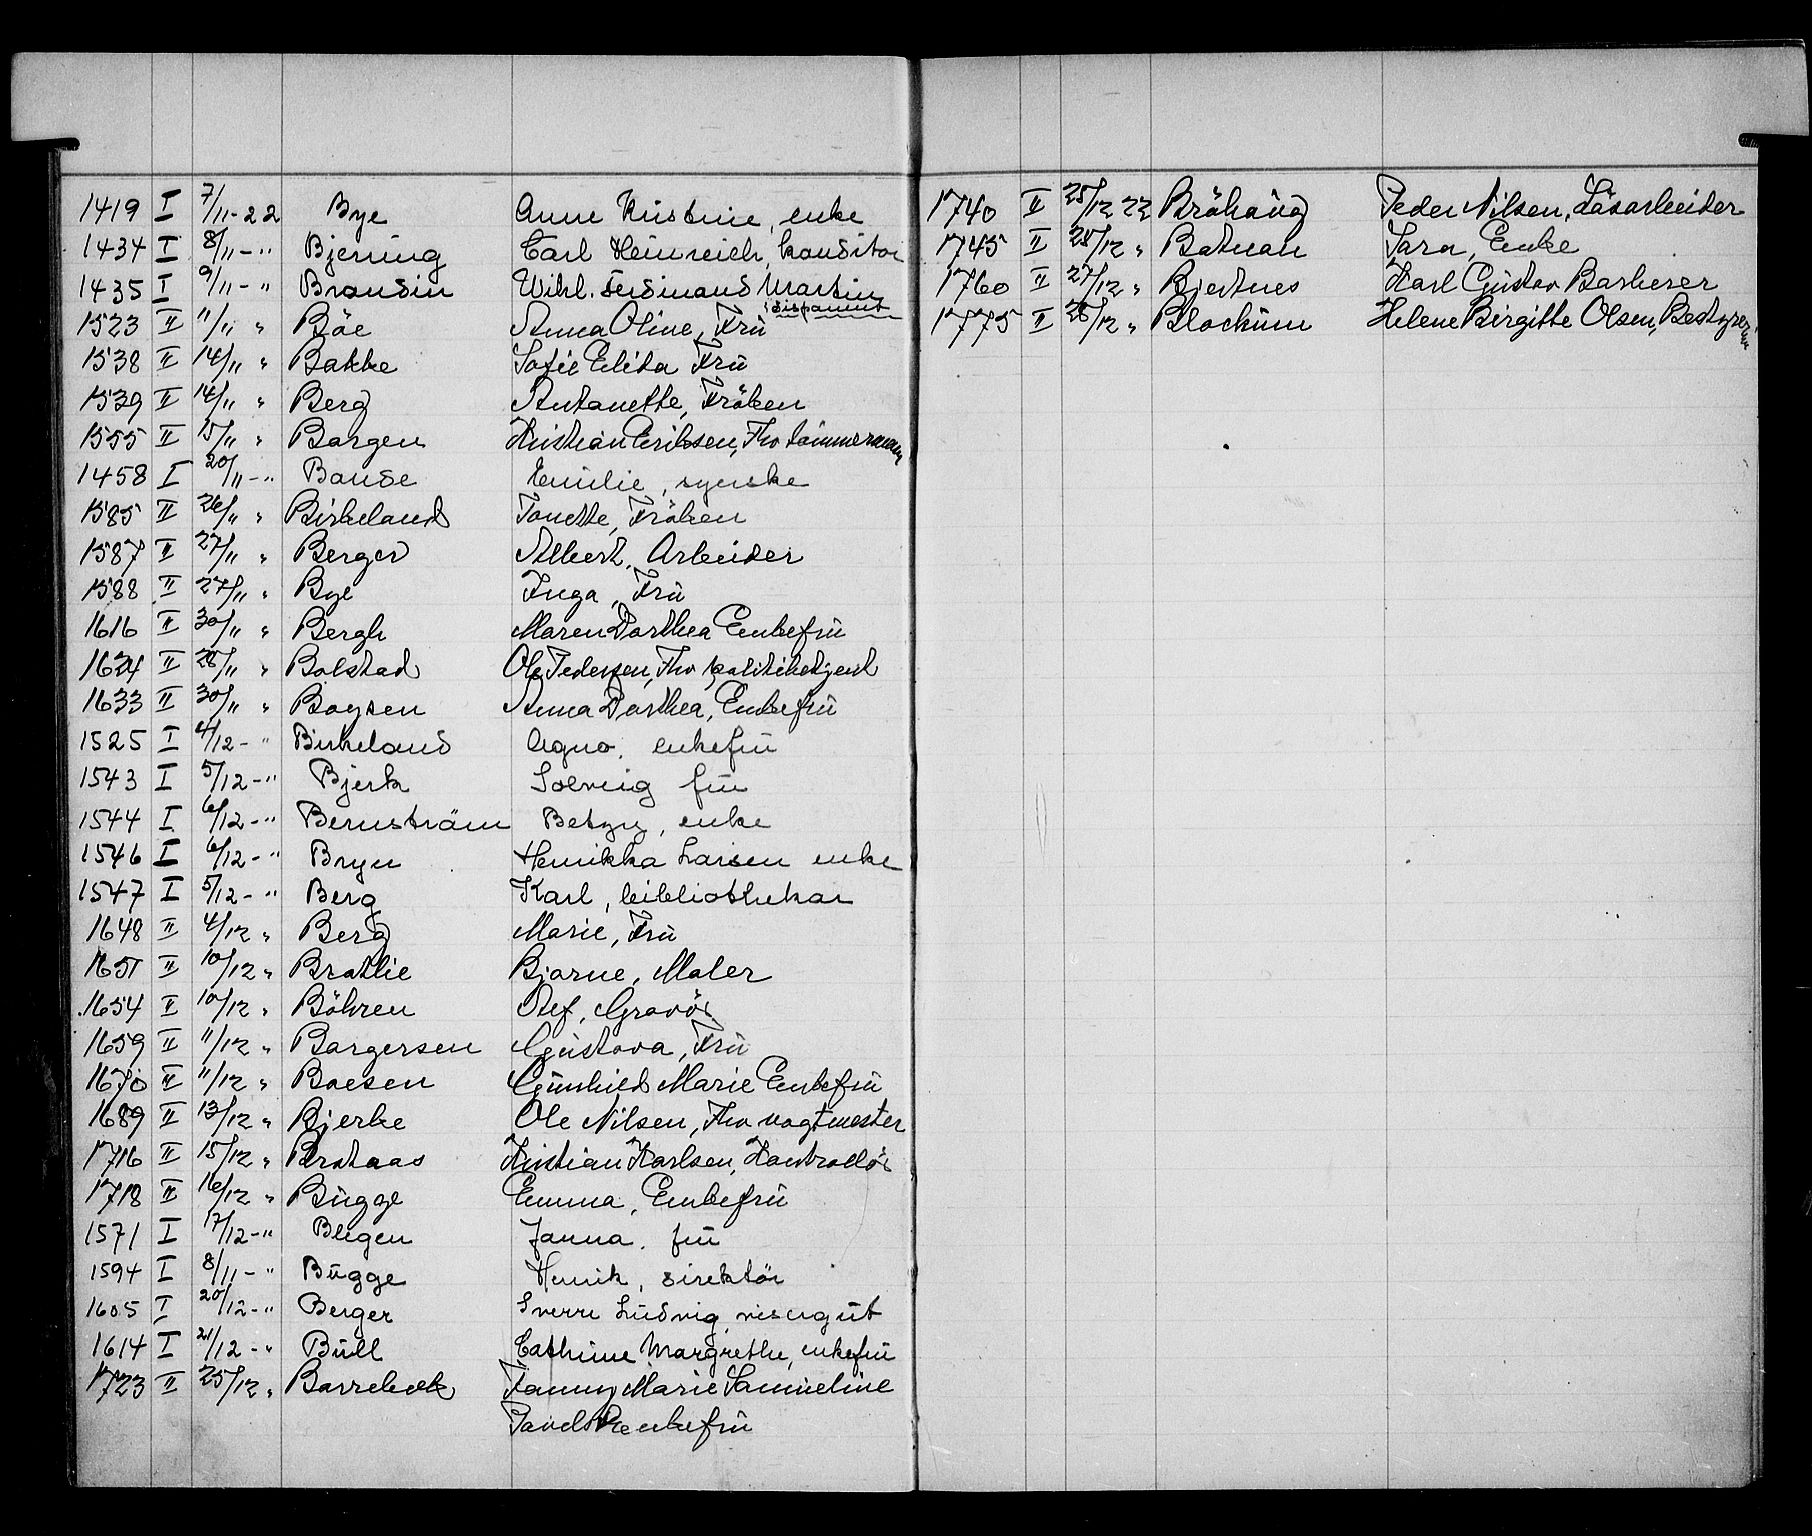 1419 I 7/11-22 Bye Anne Kristine, enke
1434 I 8/11-" Bjerring Carl Heinreich, konditor
1435 I 9/11-" Brandin Wihl. Ferdinand Martin disponent
1523 II 11/11 " Böe Anna Oline, Frü
1538 II 14/11 " Bakke Sofie Elida Frü
1539 II 14/11 " Berg Antonette, Fröken
1555 II 15/11 " Borgen Kristian Eriksen, Fhv tömmermann
1458 I 20/11-" Bonde Emilie, syerske
1585 II 26/11 " Birkeland Tonette, Fröken
1587 II 27/11 " Berger Albert, Arbeider
1588 II 27/11 " Bye Inga, Frü
1616 II 30/11 " Bergh Maren Dorthea Enkefrü
1624 II 28/11 " Bolstad Ole Pedersen, Fhv politibetjent
1633 II 30/11 " Boysen Anna Dorthea, Enkefrü
1525 I 4/12-" Birkeland Agna, enkefrü
1543 I 5/12-" Bjerk Solveig frü
1544 I 6/12-" Bernström Betzy, enke
1546 I 6/12-" Bryn Henrikka Larsen enke
1547 I 5/12-" Berg Karl, bibliothekar
1648 II 4/12 " Berg Marie, Frü
1651 II 10/12 " Bratlie Bjarne, Maler
1654 II 10/12 " Böhren Alf, Gravör
1659 II 11/12 " Borgersen Güstava, Frü
1670 II 11/12 " Boesen Günhild Marie Enkefrü
1689 II 13/12 " Bjerke Ole Nilsen, Fhv vagtmester
1716 II 15/12 " Brataas Kristian Karlsen, Kontrollör
1718 II 16/12 " Bügge Emma, Enkefrü
1571 I 17/12-" Blegen Janna, frü
1594 I 8/11-" Bügge Henrik, direktör
1605 I 20/12-" Berger Sverre Lüdvig, visergüt
1614 I 21/12-" Büll Cathrine Margrethe, enkefrü
1723 II 25/12 " Barrebek Fanny Marie Samüeline
enkefrü
1740 II 25/12 22 Bröhaüg Peder Nilsen, Lösarbeider
1745 II 28/12 " Batman Sara, Enke
1760 II 27/12 " Bjertnes Karl Güstav Barberer
1775 II 28/12 " Blochüm Helene Birgitte Olsen, Bestyrerinne